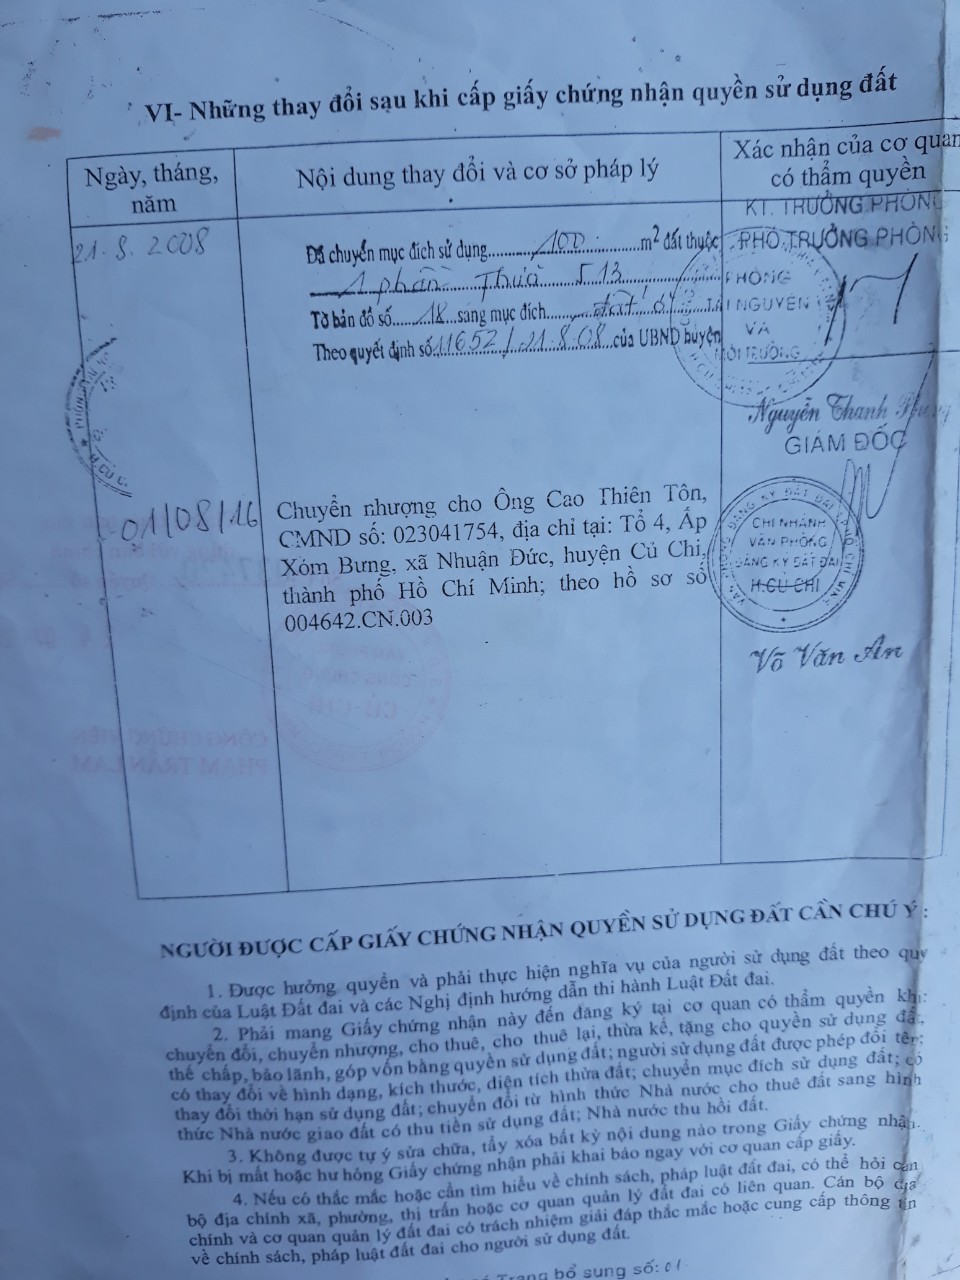 VI- Những thay đổi sau khi cấp giấy chứng nhận quyền sử dụng đất
Ngày, tháng, năm
Nội dung thay đổi và cơ sở pháp lý
Xác nhận của cơ quan có thẩm quyền
21.8.2008
Đã chuyển mục đích sử dụng 100 m² đất thuộc
1 phần Thửa 513
Tờ bản đồ số 18 sang mục đích đất ở
Theo quyết định số 11652/21.8.08 của UBND huyện
KT. TRƯỞNG PHÒNG
PHÓ TRƯỞNG PHÒNG
PHÒNG
TÀI NGUYÊN
VÀ
MÔI TRƯỜNG
Nguyễn Thanh
GIÁM ĐỐC
01/08/16
Chuyển nhượng cho Ông Cao Thiên Tôn,
CMND số: 023041754, địa chỉ tại: Tổ 4, Ấp
Xóm Bưng, xã Nhuận Đức, huyện Củ Chi,
thành phố Hồ Chí Minh; theo hồ sơ số
004642.CN.003
CHI NHÁNH
VĂN PHÒNG
ĐĂNG KÝ ĐẤT ĐAI
H.CỦ CHI
Võ Văn An
NGƯỜI ĐƯỢC CẤP GIẤY CHỨNG NHẬN QUYỀN SỬ DỤNG ĐẤT CẦN CHÚ Ý :
1. Được hưởng quyền và phải thực hiện nghĩa vụ của người sử dụng đất theo quy
định của Luật Đất đai và các Nghị định hướng dẫn thi hành Luật Đất đai.
2. Phải mang Giấy chứng nhận này đến đăng ký tại cơ quan có thẩm quyền khi:
chuyển đổi, chuyển nhượng, cho thuê, cho thuê lại, thừa kế, tặng cho quyền sử dụng đất,
thế chấp, bảo lãnh, góp vốn bằng quyền sử dụng đất; người sử dụng đất được phép đổi tên;
có thay đổi về hình dạng, kích thước, diện tích thửa đất; chuyển mục đích sử dụng đất; có
thay đổi thời hạn sử dụng đất; chuyển đổi từ hình thức Nhà nước cho thuê đất sang hình
thức Nhà nước giao đất có thu tiền sử dụng đất; Nhà nước thu hồi đất.
3. Không được tự ý sửa chữa, tẩy xóa bất kỳ nội dung nào trong Giấy chứng nhận.
Khi bị mất hoặc hư hỏng Giấy chứng nhận phải khai báo ngay với cơ quan cấp giấy.
4. Nếu có thắc mắc hoặc cần tìm hiểu về chính sách, pháp luật đất đai, có thể hỏi cán
bộ địa chính xã, phường, thị trấn hoặc cơ quan quản lý đất đai có liên quan. Cán bộ địa
chính và cơ quan quản lý đất đai có trách nhiệm giải đáp thắc mắc hoặc cung cấp thông tin
về chính sách, pháp luật đất đai cho người sử dụng đất.
Trang bổ sung số: 01